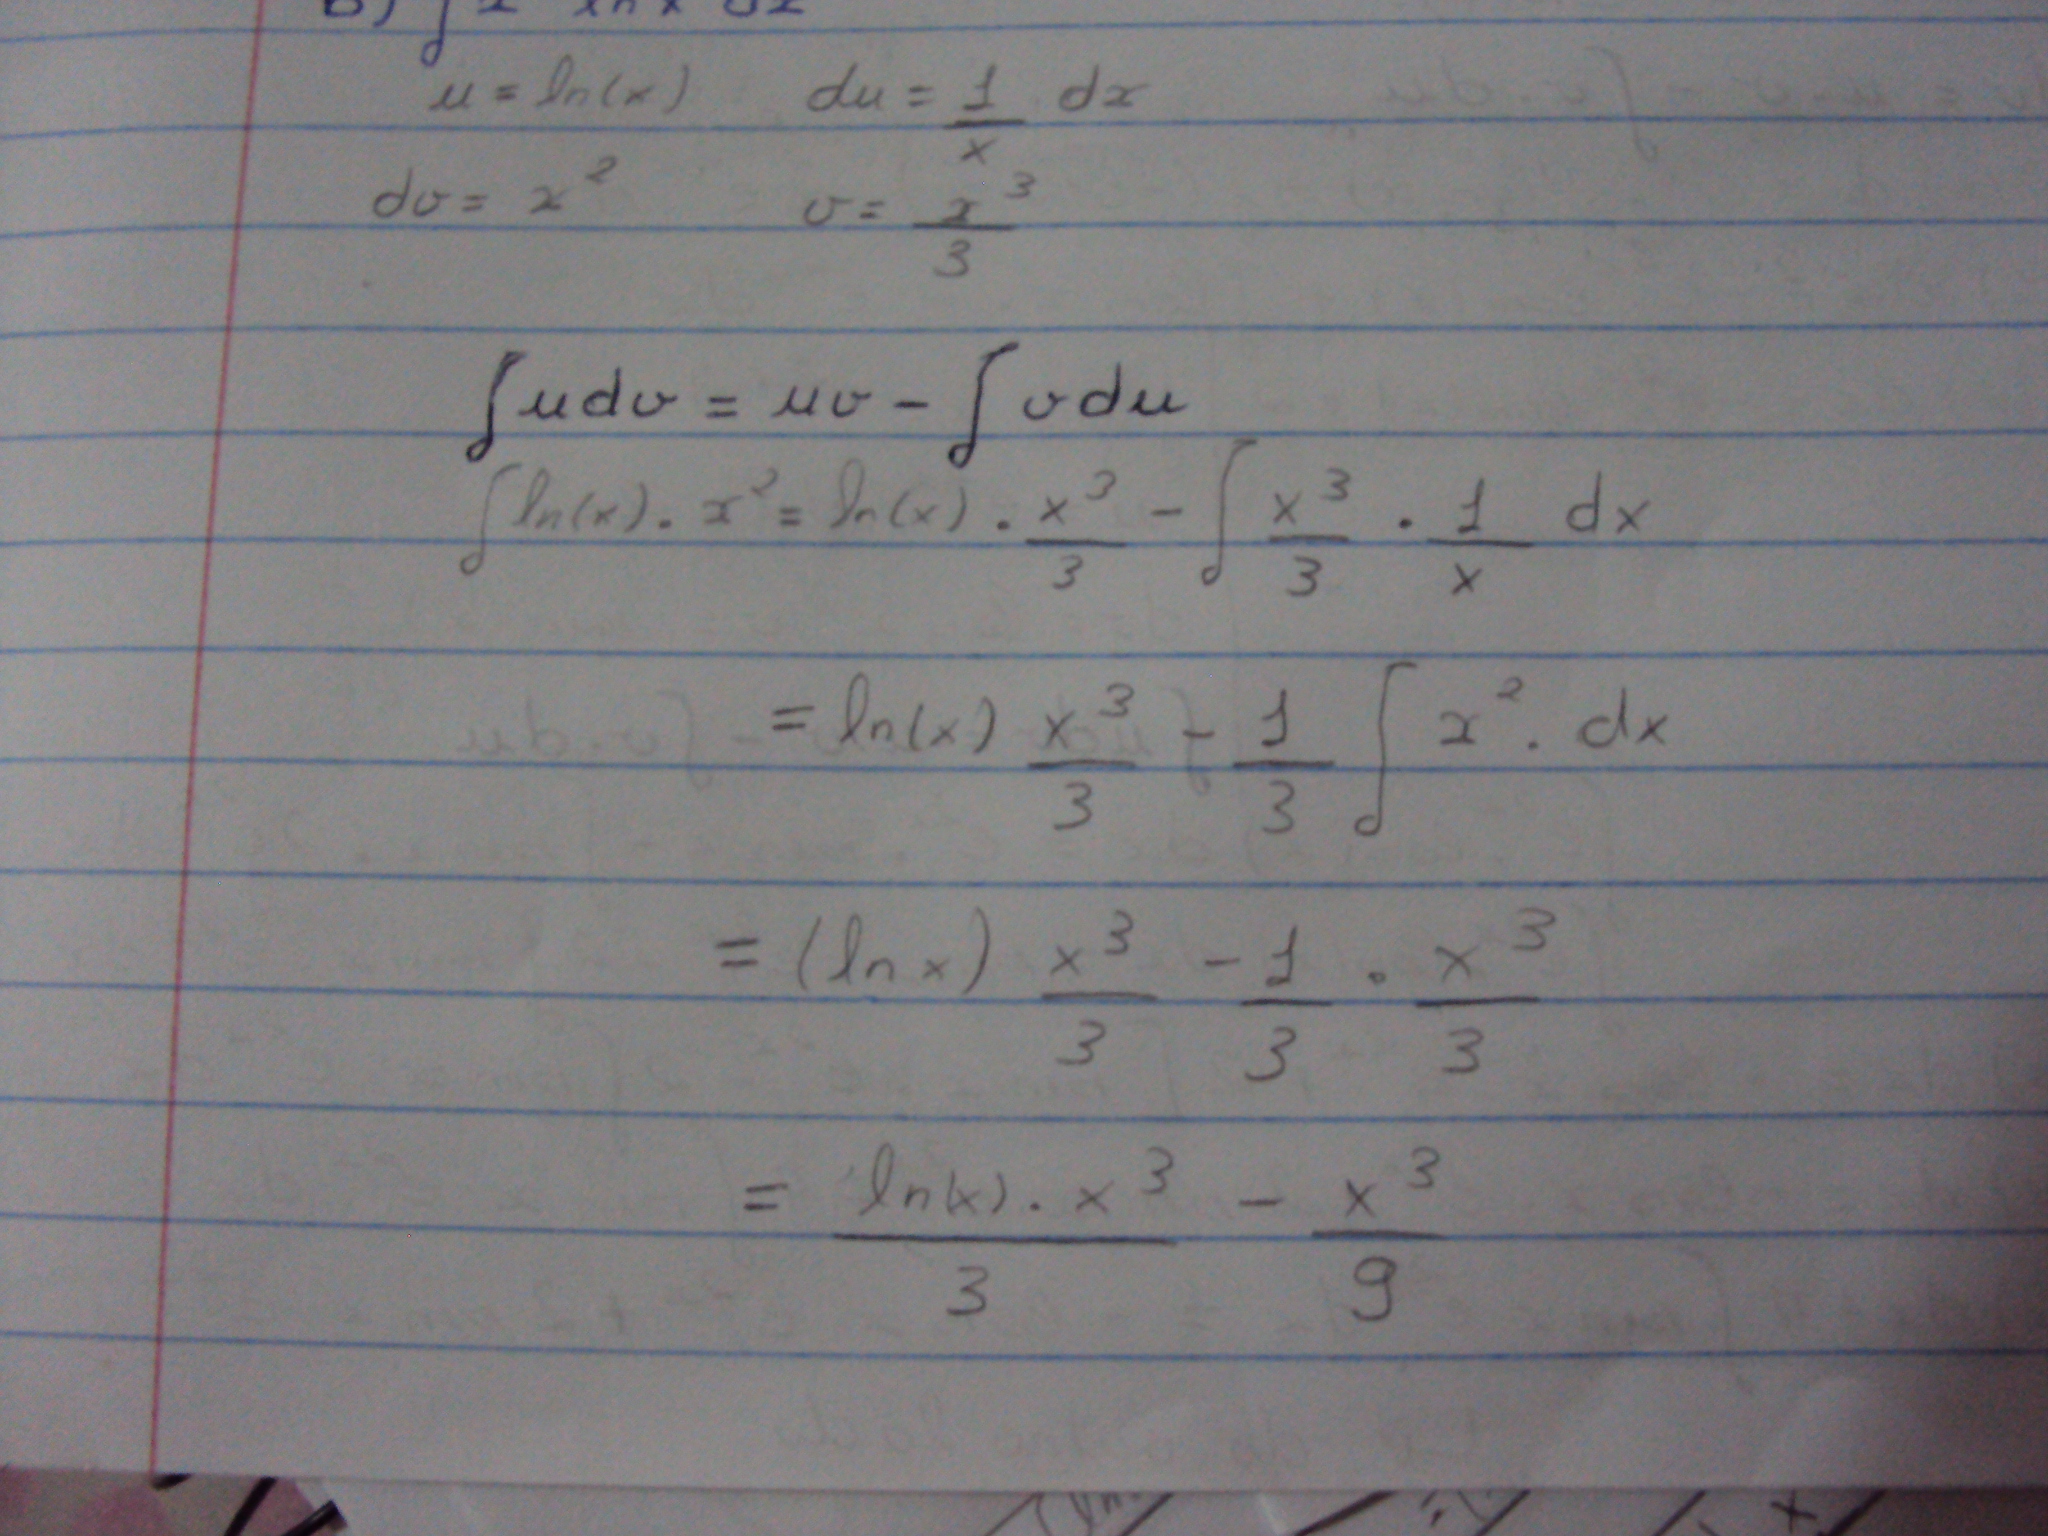 B) ∫ x ln x dx
u = ln(x) du = 1/x dx
dv = x² v = x³/3
∫ u dv = uv - ∫ v du
∫ ln(x) . x² = ln(x) . x³/3 - ∫ x³/3 . 1/x dx
= ln(x) x³/3 - 1/3 ∫ x² . dx
= (ln x) x³/3 - 1/3 . x³/3
= ln(x) . x³/3 - x³/9